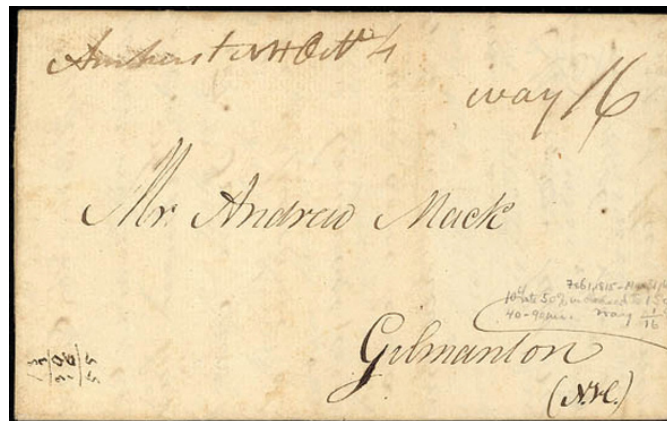 Amherst NH Octr 4
way 16
Mr. Andrew Mack
Feb 1, 1815 -
10¢ rate 50% increased to 15¢
40 - 90 mi. way 1
16
Gilmanton
(N.H.)